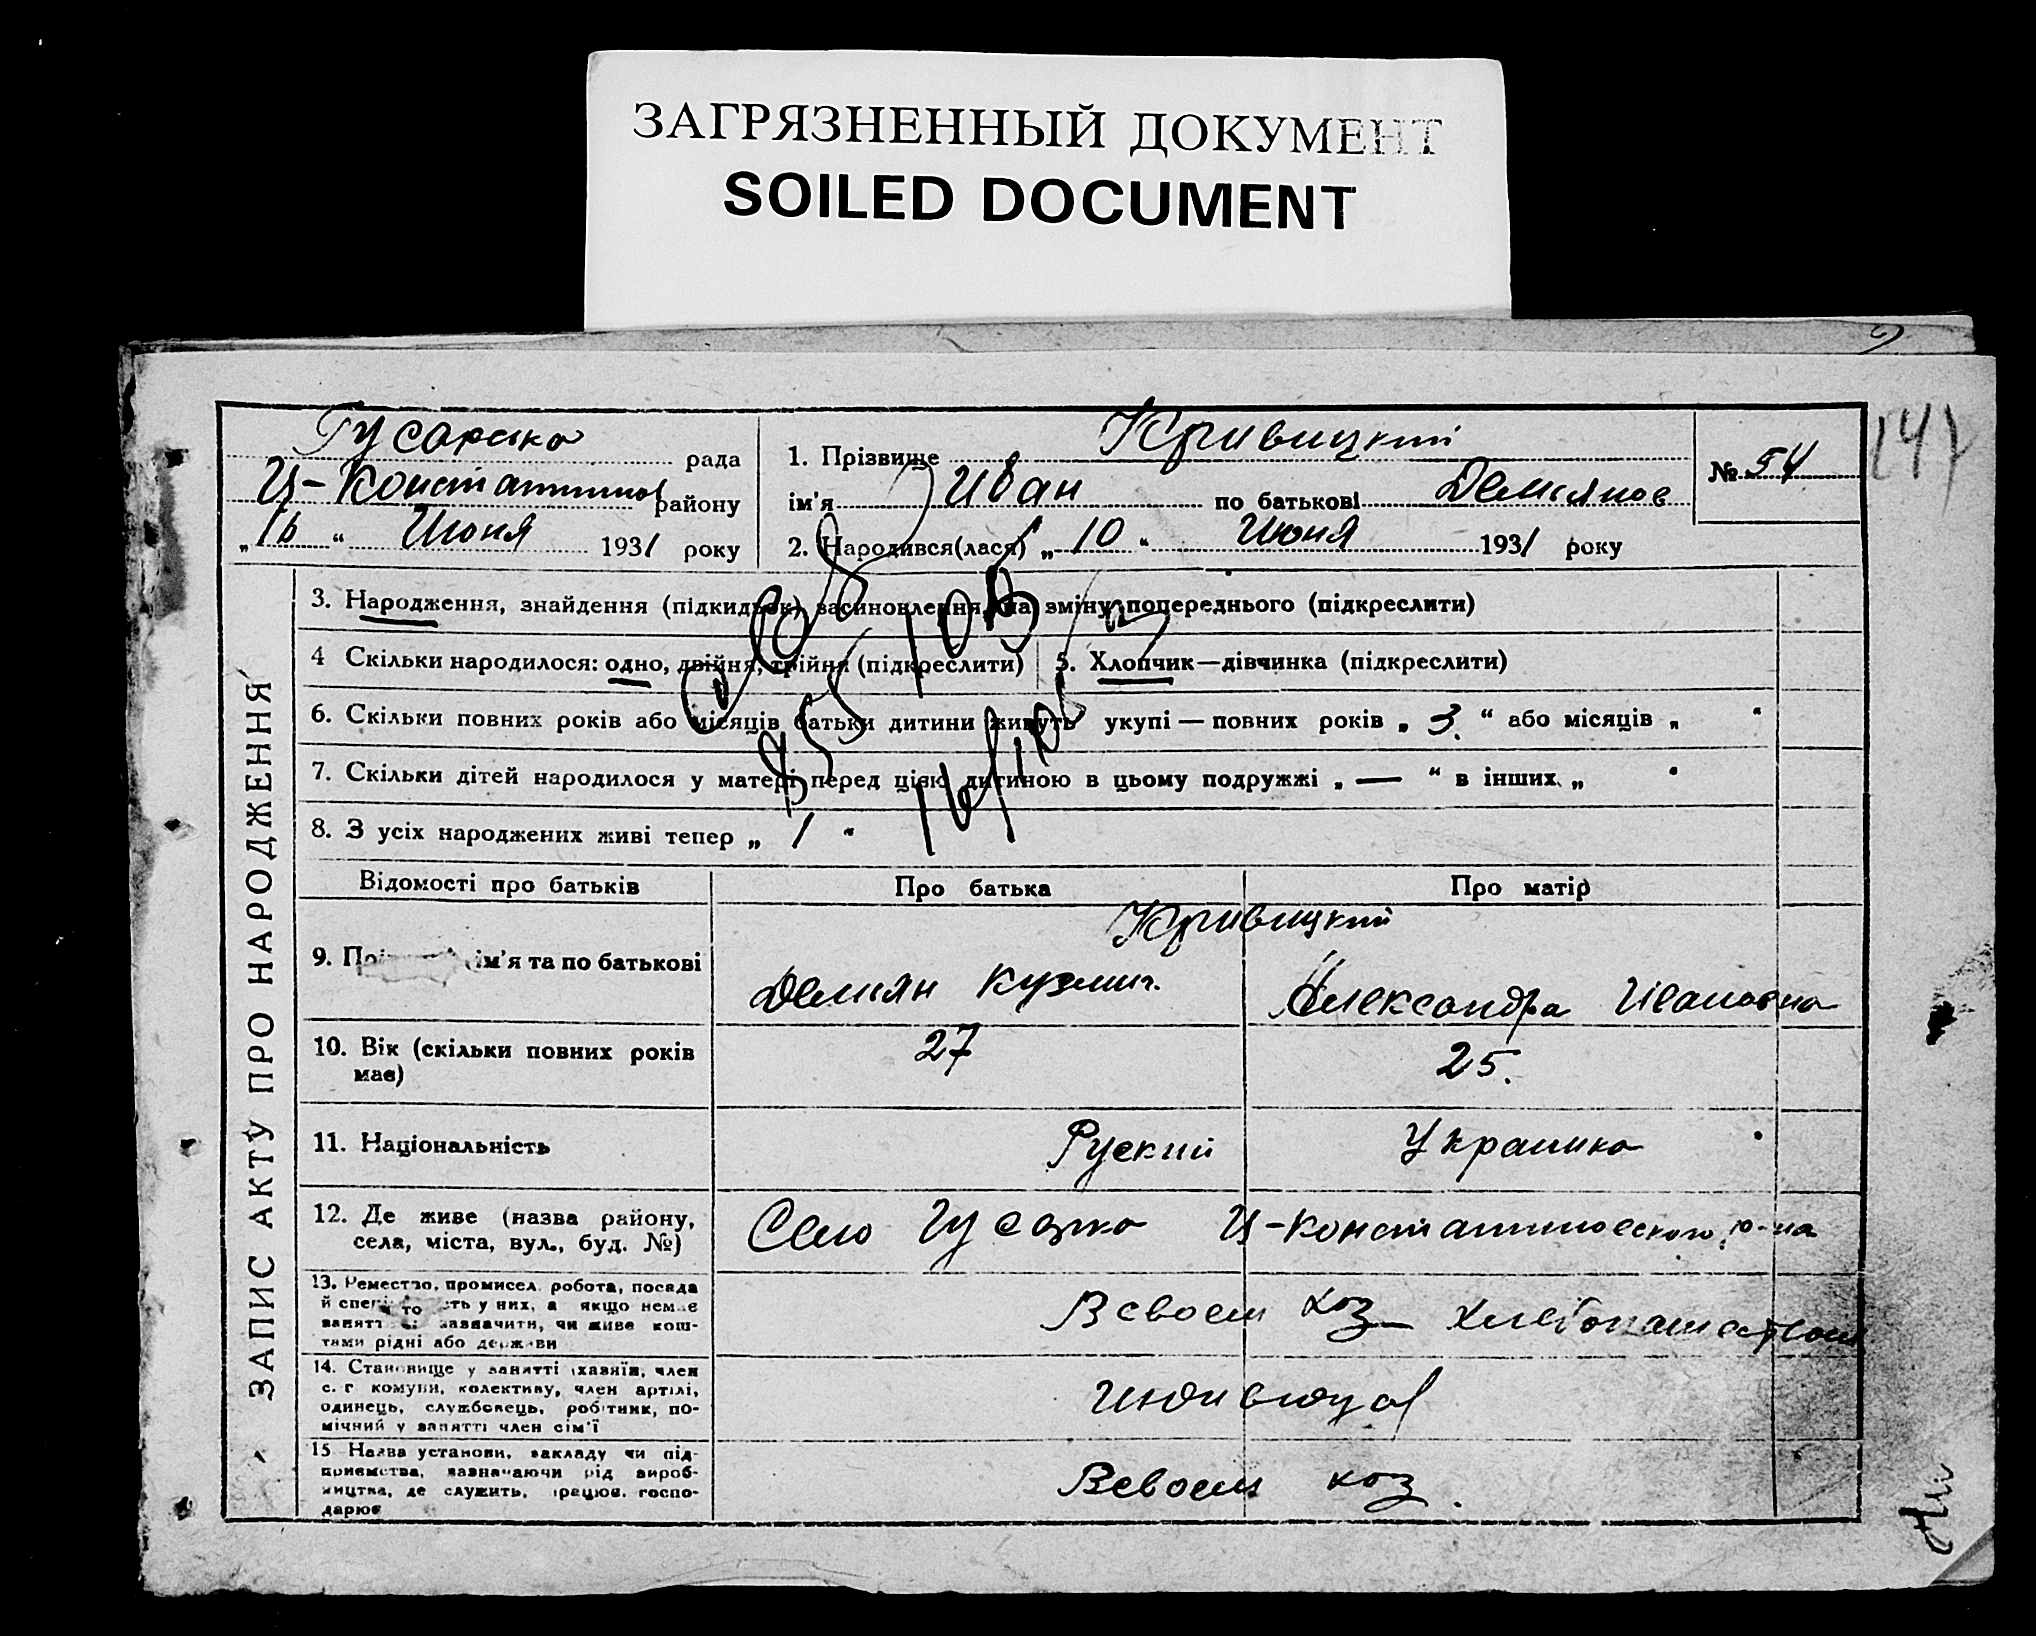 ЗАГРЯЗНЕННЫЙ ДОКУМЕНТ
SOILED DOCUMENT
Гусарська рада
Ц-Константинов району
„16“ Июня 1931 року
1. Прізвище Кривицкий
ім'я Иван по батькові Демьянов
2. Народився(лася) „10“ Июня 1931 року
№ 54
147
ЗАПИС АКТУ ПРО НАРОДЖЕННЯ
3. Народження, знайдення (підкидьок) засиновлення, на зміну попереднього (підкреслити)
4 Скільки народилося: одно, двійня, трійня (підкреслити)
5. Хлопчик—дівчинка (підкреслити)
6. Скільки повних років або місяців батьки дитини живуть укупі — повних років „3.“ або місяців „ “
7. Скільки дітей народилося у матері перед цією дитиною в цьому подружжі „—“ в інших „ “
8. З усіх народжених живі тепер „1“
Відомості про батьків Про батька Про матір
Кривицкий
9. ім'я та по батькові Демьян Кузмич. Александра Ивановна
10. Вік (скільки повних років має) 27 25.
11. Національність Руский Украинка
12. Де живе (назва району, села, міста, вул., буд. №) Село Гусарка Ц-Константиновского р-на
13. Ремество, промисел, робота, посада
й у них, а якщо немає
зазначити, чи живе кош-
тами рідні або держави
В своем хоз хлебопашеством
14. Становище у занятті (хазяїн, член
с. г комуни, колективу, член артілі,
одинець, службовець, робітник, по-
мічний у занятті член сім'ї
Индивидуал
15 Назва установи, закладу чи під-
приємства, зазначаючи рід вироб-
ництва, де служить, працює, госпо-
дарює
В своем хоз.